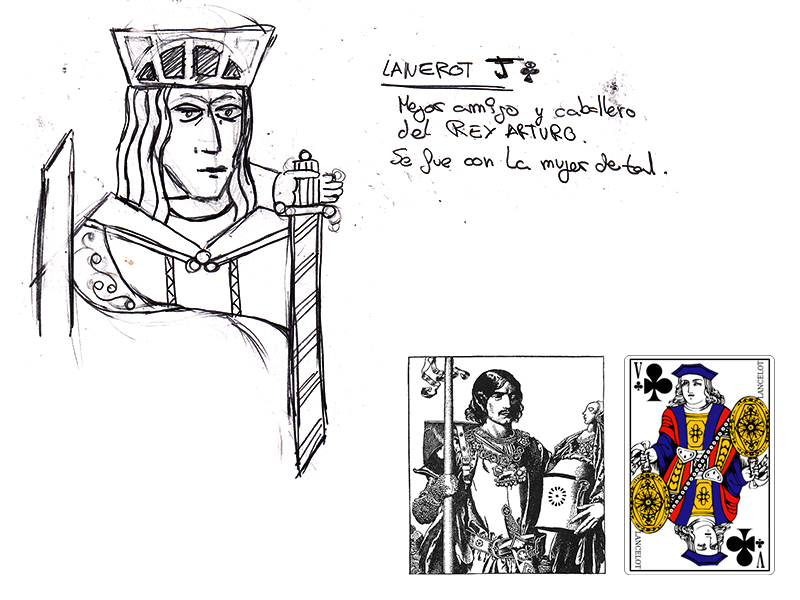 LANEROT J♣
Mejor amigo y caballero
del REY ARTURO.
Se fue con la mujer de tal.
V
LANCELOT
LANCELOT
V